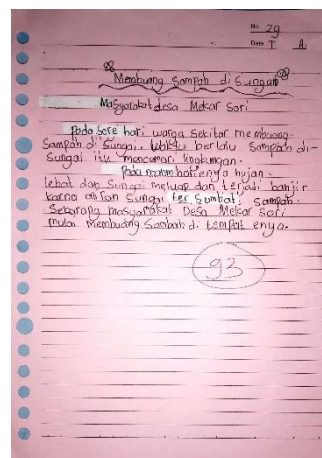 No. 29
Date I A
Membuang Sampah di Sungai
Masyarakat desa Mekar Sari
Pada Sore hari warga sekitar membuang
Sampah di Sungai. Waktu berlalu Sampah di-
Sungai itu mencumari lingkungan.
Pada malam harienya hujan
lebat dan Sungai meluap dan terjadi banjir
karna aliran Sungai ter Sumbat Sampah.
Sekarang masyarakat Desa Mekar Sari
mulai membuang Sambah di tempat enya.
93